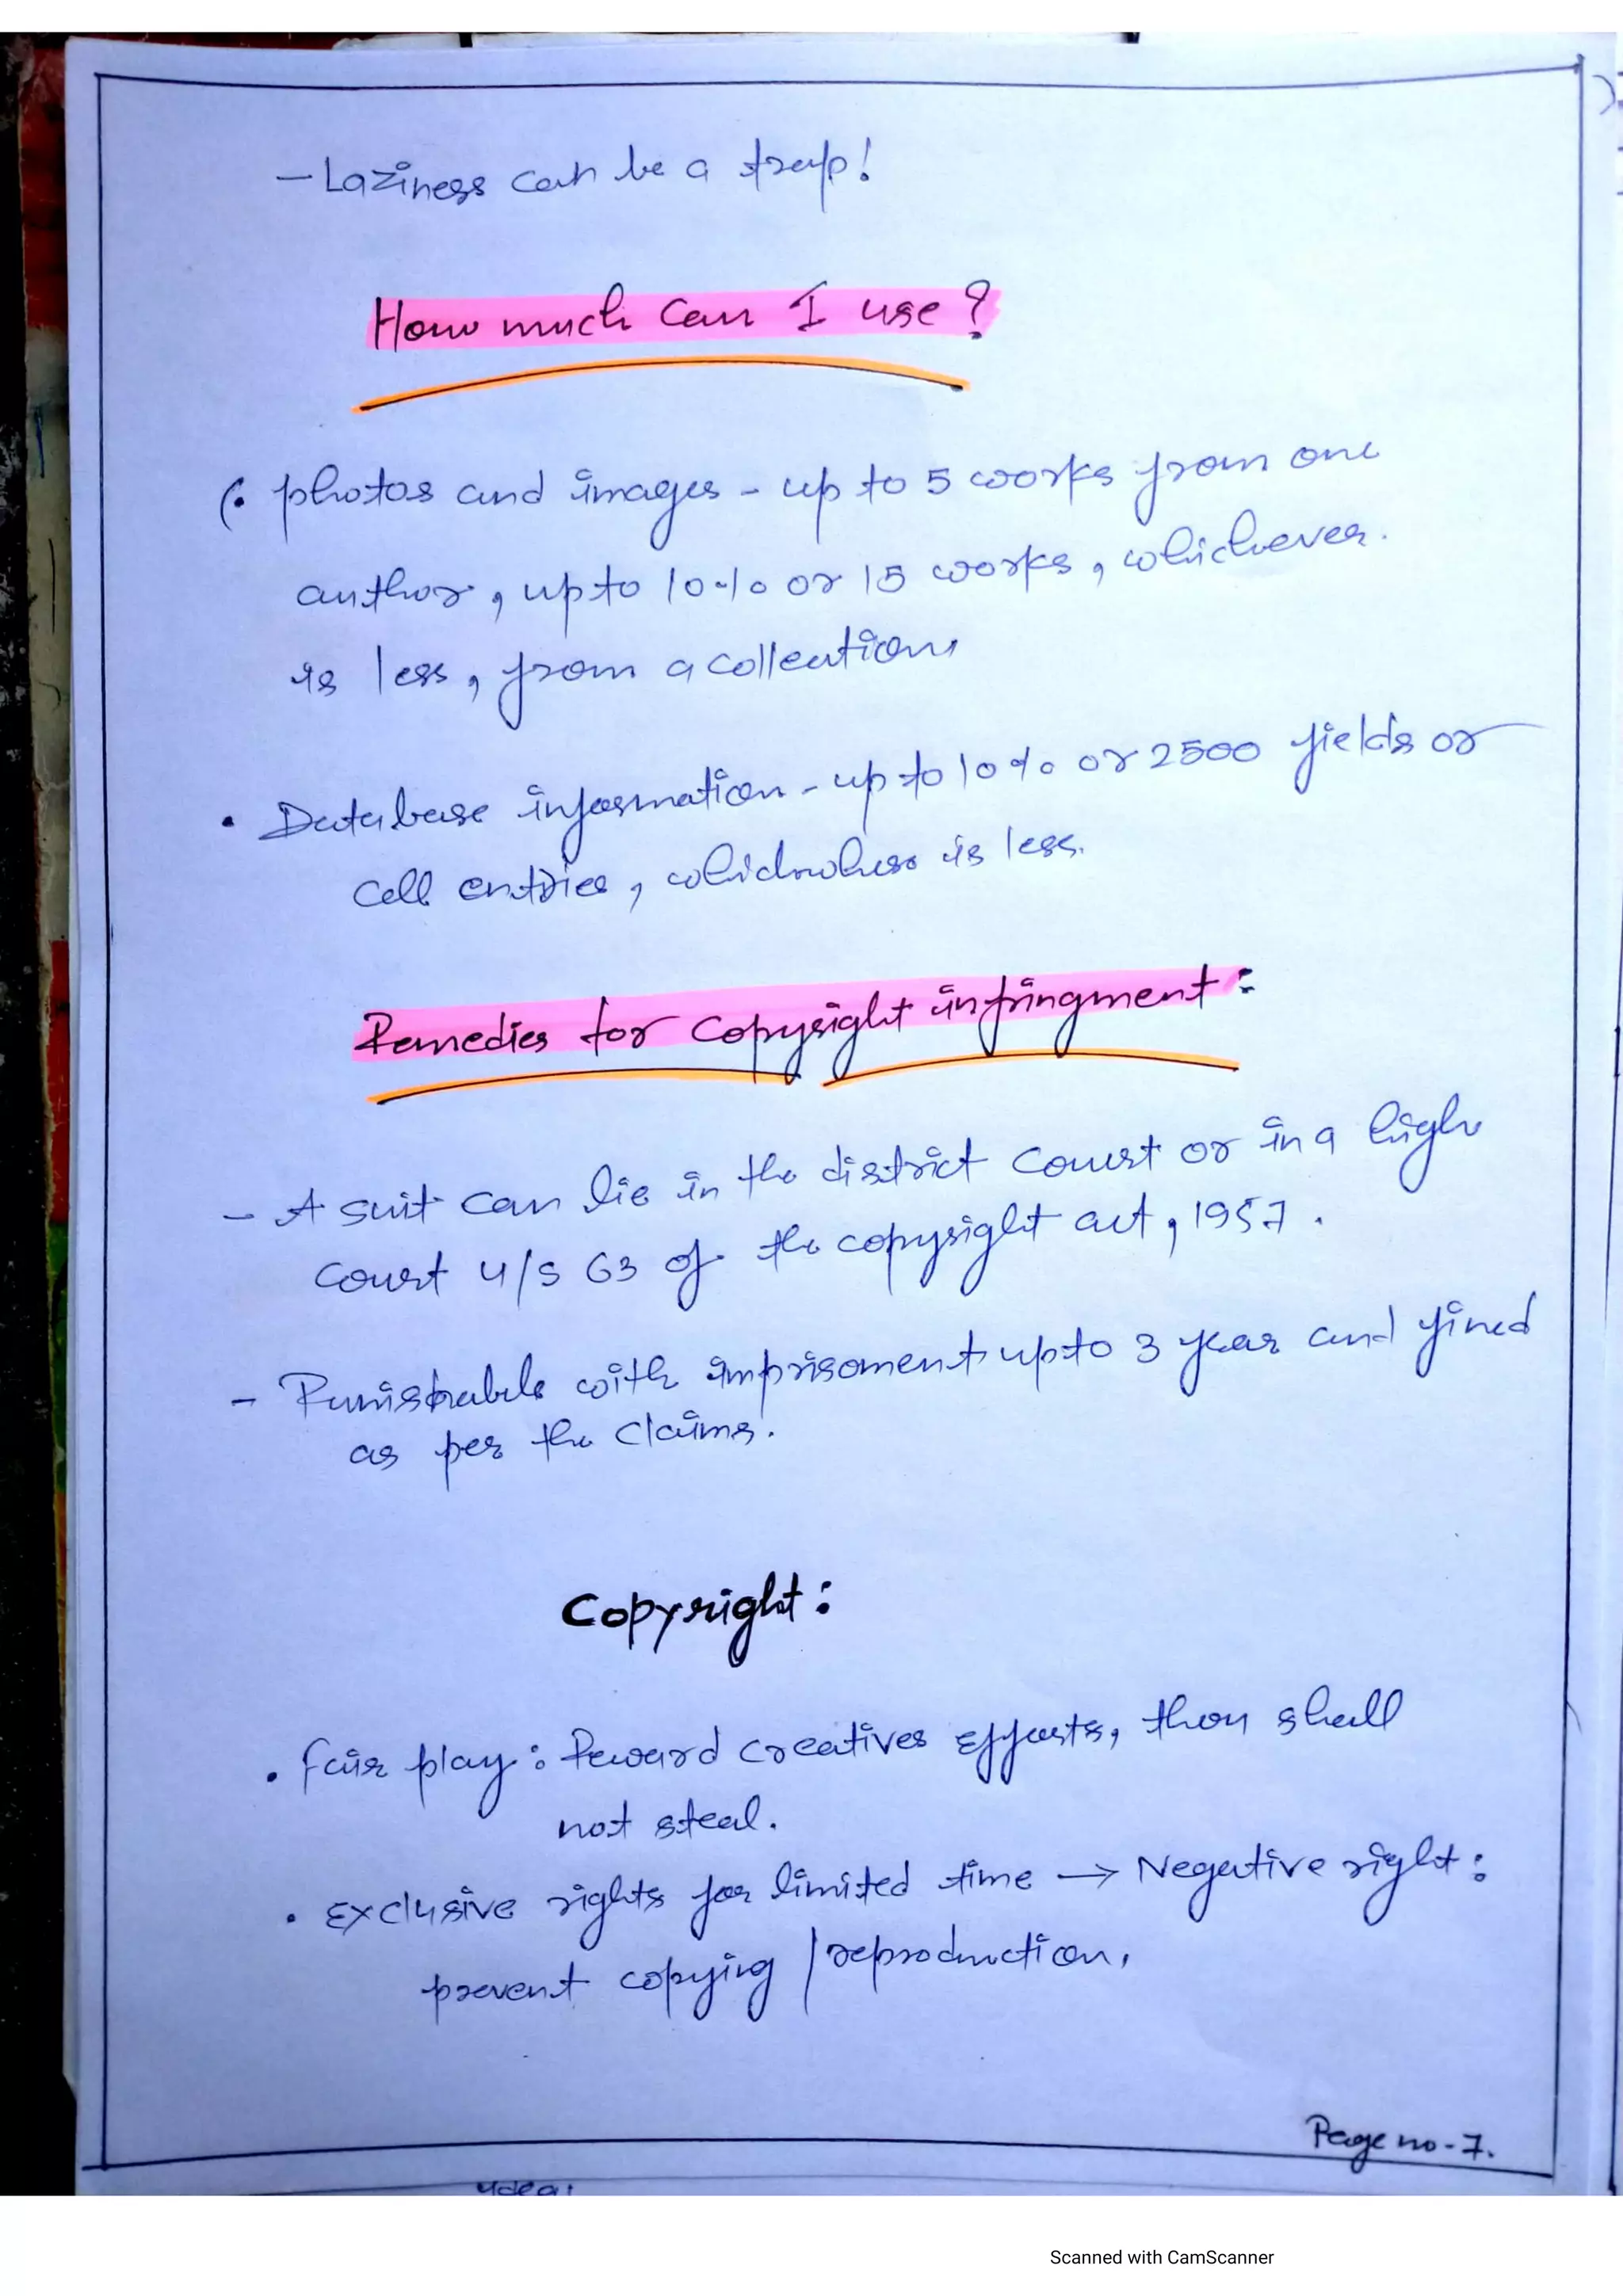 - Laziness can be a trap!
How much can I use?
• photos and images - up to 5 works from one
author, upto 10% or 15 works, whichever.
is less, from a collection
• Database information - up to 10% or 2500 fields or
cell entries, is less.
Remedies for copyright infringment:
- A suit can lie in the district court or in a high
court u/s 63 of the copyright act, 1957.
- Punishable with imprisoment upto 3 year and fined
as per the claims.
Copyright:
• fair play: Reward creatives efforts, thou shall
not steal.
• Exclusive rights for limited time → Negative right:
prevent copying / reproduction.
Page no - 7.
Scanned with CamScanner